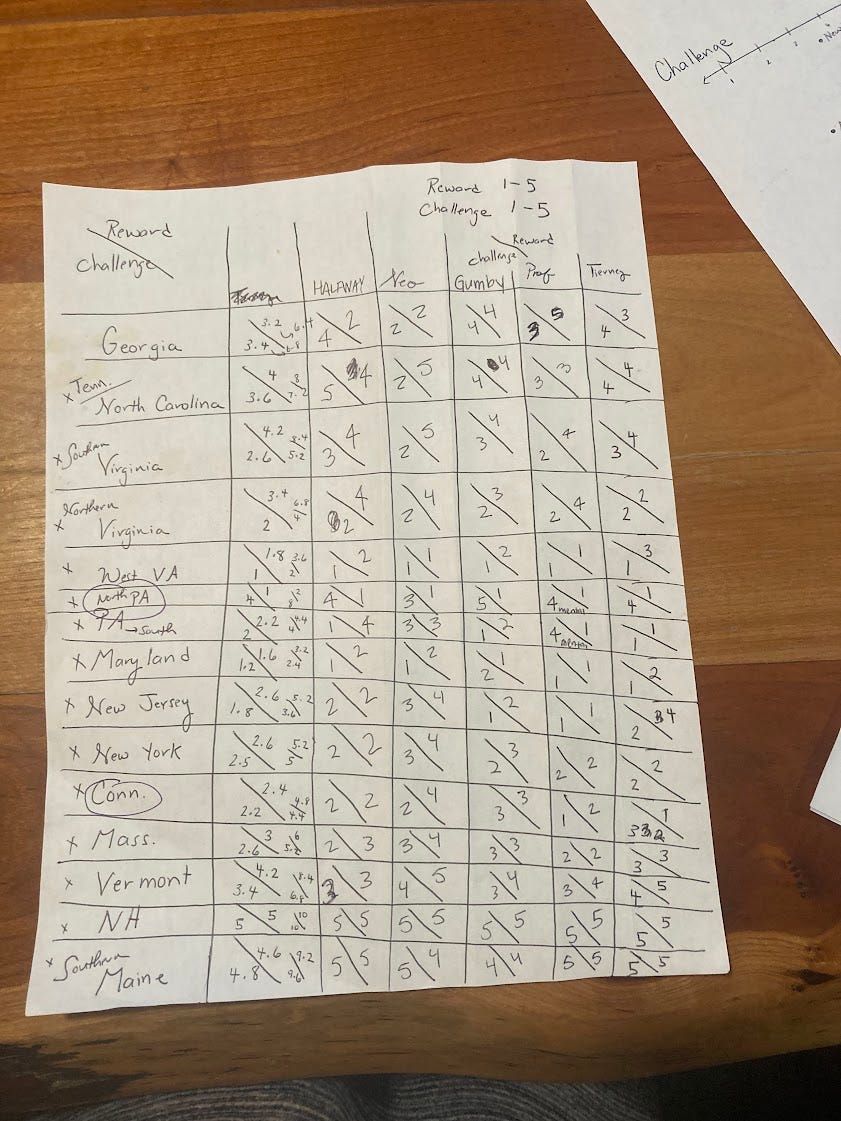 Challenge
1 2 3
Reward 1-5
Challenge 1-5
Reward
Challenge
HALFWAY Neo
challenge Reward
Gumby Prof Tierney
Georgia 3.2 3.4 6.4 6.8 2 4 2 2 4 4 5 3 3 4
x Tenn.
North Carolina 4 3.6 8 7.2 4 5 5 2 4 4 3 3 4 4
x Southern
Virginia 4.2 2.6 8.4 5.2 4 3 5 2 4 3 4 2 4 3
Northern
x Virginia 3.4 2 6.8 4 4 2 4 2 3 2 4 2 2 2
x West VA 1.8 1 3.6 2 2 1 1 1 2 1 1 1 3 1
x North PA 1 4 2 8 1 4 1 3 1 5 1 4 mental 1 4
x PA → South 2.2 2 4.4 4 4 1 3 3 2 1 1 4 1 1
x Maryland 1.6 1.2 3.2 2.4 2 1 2 1 1 2 1 1 2 1
x New Jersey 2.6 1.8 5.2 3.6 2 2 4 3 2 1 1 1 4 2
x New York 2.6 2.5 5.2 5 2 2 4 3 3 2 2 2 2 2
x Conn. 2.4 2.2 4.8 4.4 2 2 4 2 3 3 2 1 1
x Mass. 3 2.6 6 5.2 3 2 4 3 3 3 2 2 3 3
x Vermont 4.2 3.4 8.4 6.8 3 3 5 4 4 3 4 3 5 4
x NH 5 5 10 10 5 5 5 5 5 5 5 5 5 5
x Southern
Maine 4.6 4.8 9.2 9.6 5 5 4 5 4 4 5 5 5 5